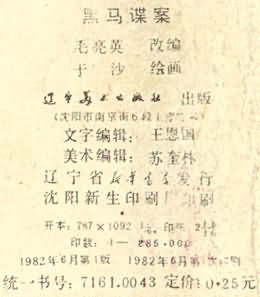 黑马谍案
毛亮英 改编
于沙 绘画
辽宁美术出版社 出版
(沈阳市南京街6段1
文字编辑: 王恩国
美术编辑: 苏奎林
辽宁省新华书店发行
沈阳新生印刷厂印刷
开本: 787×1092 印张: 2
印数: 1—285,000
1982年6月第1版 1982年6月第
统一书号: 7161.0043 定价: 0.25元